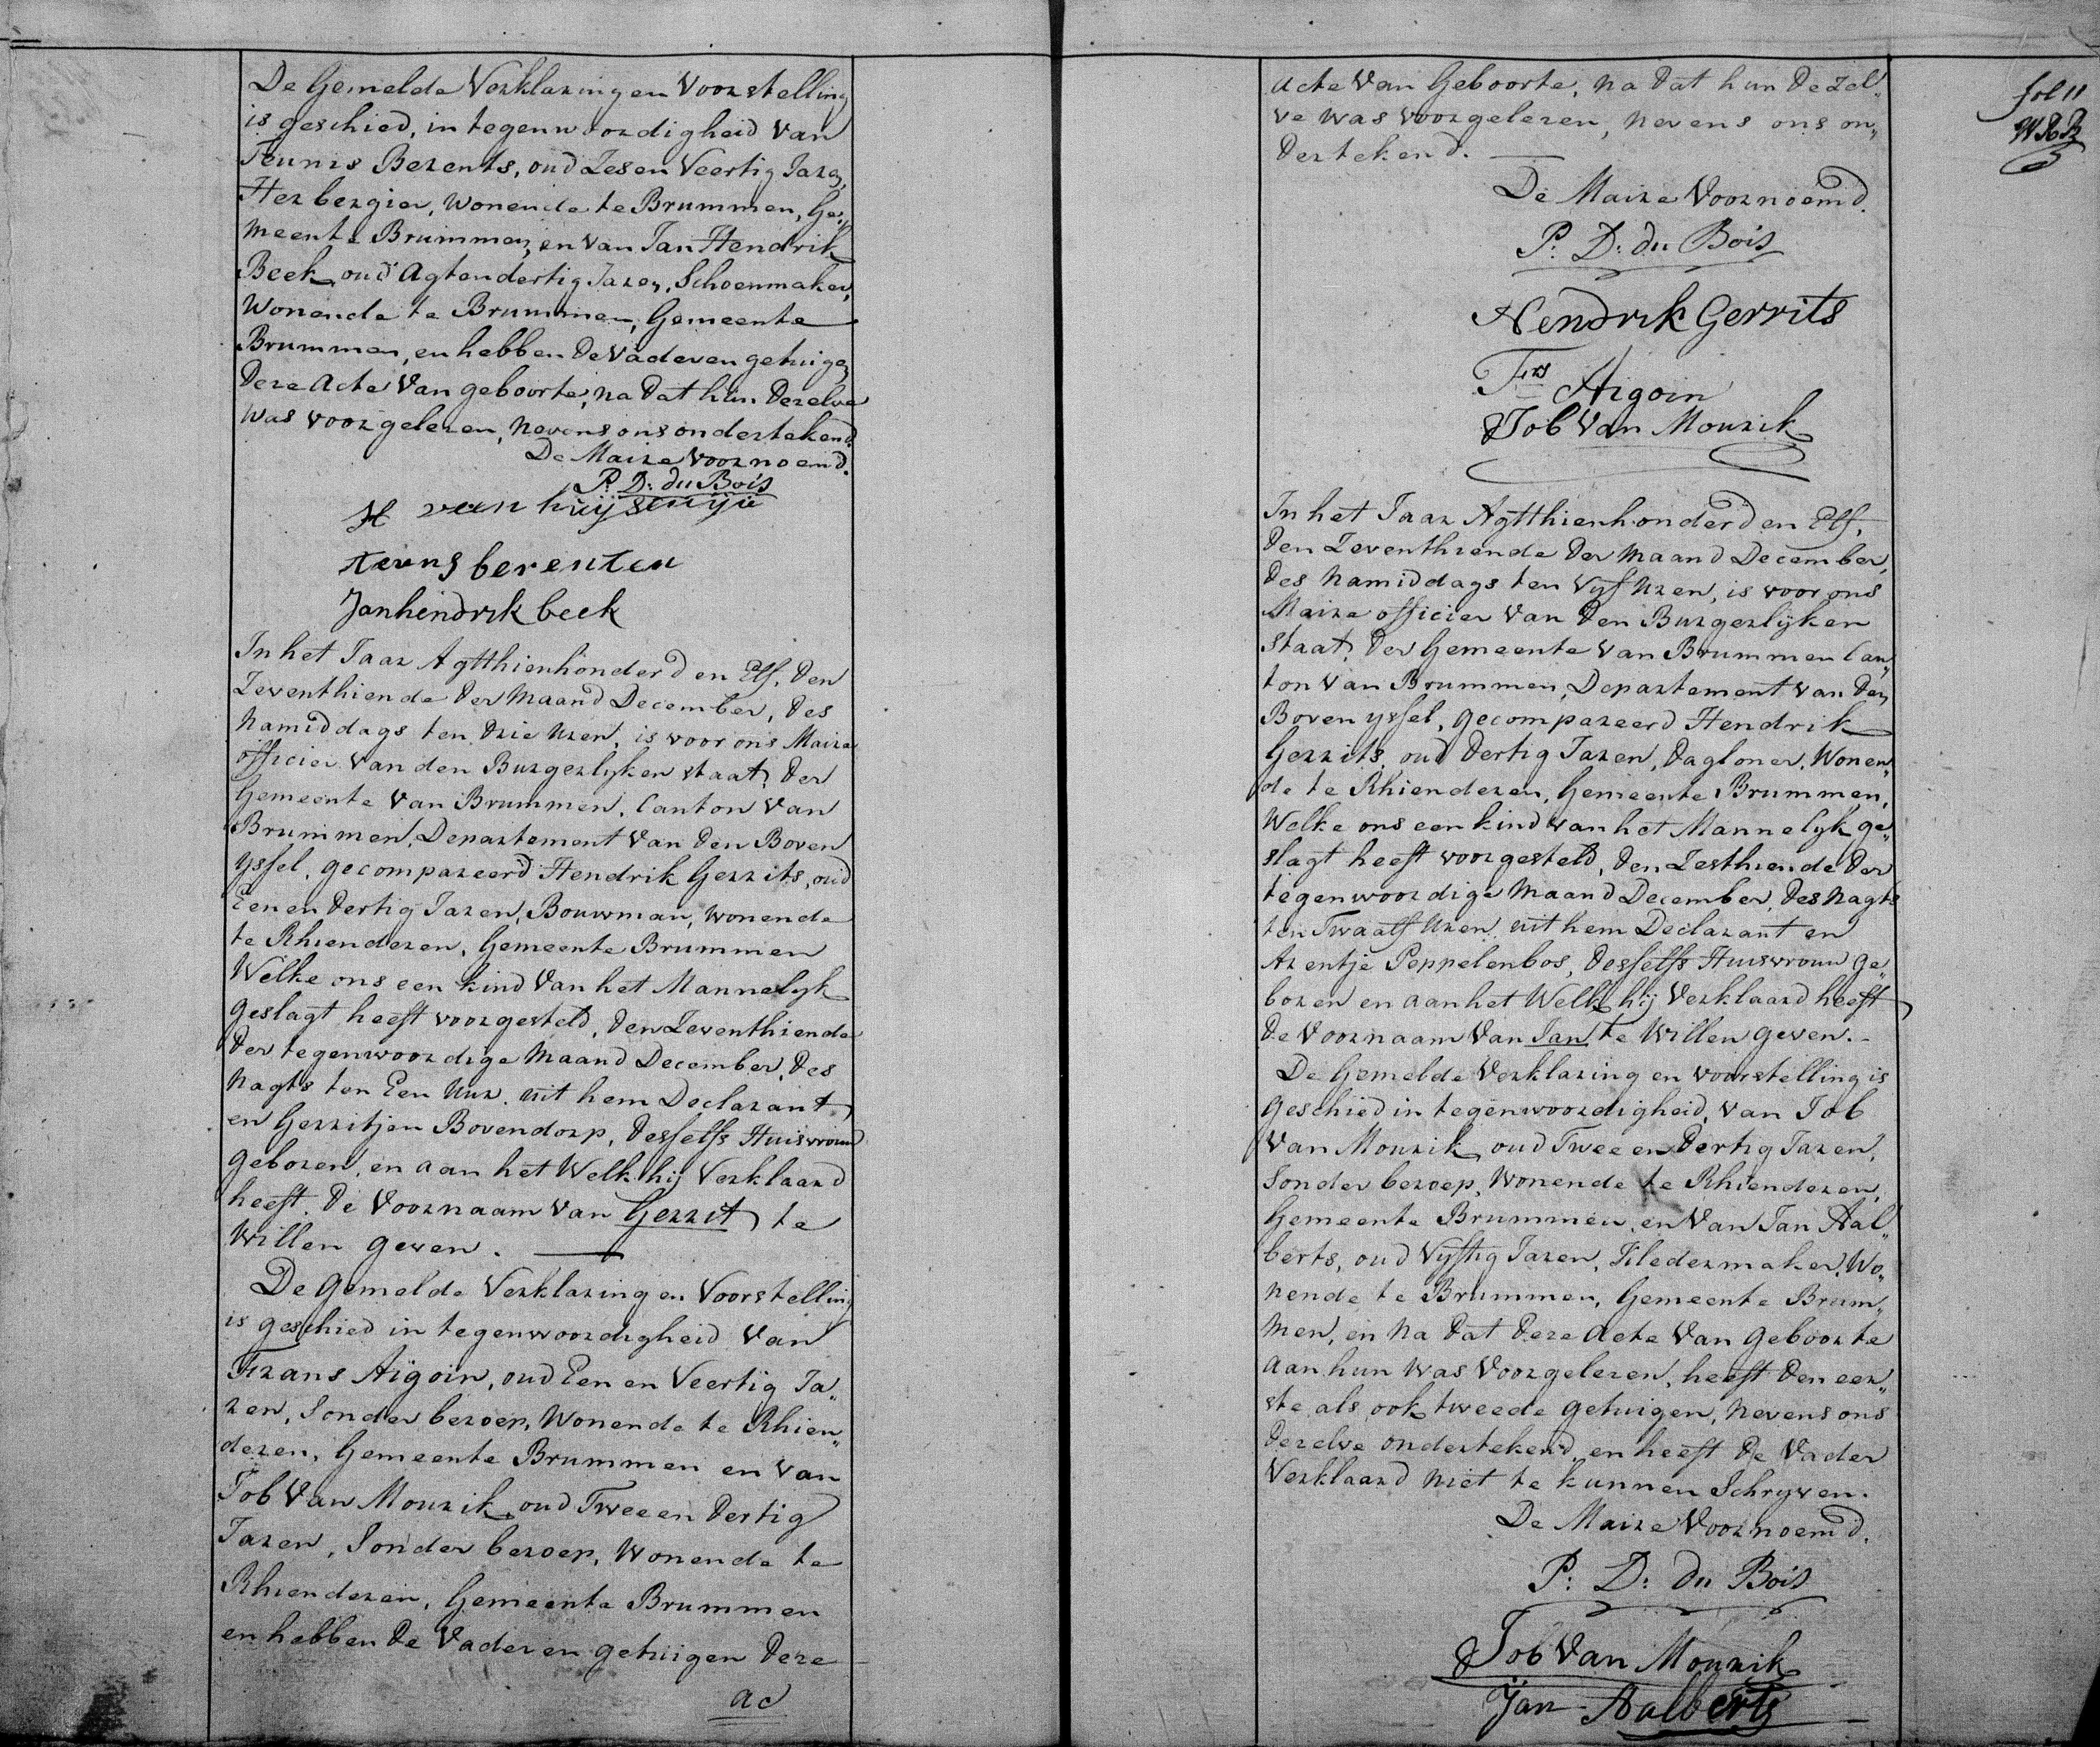 De Gemelde Verklaring en Voorstelling
is geschied, in tegenwoordigheid van
Teunis Berents, oud Zes en Veertig Jaren,
Herbergier, Wonende te Brummen, Ge„
meente Brummen, en van Jan Hendrik
Beek, oud Agt en dertig Jaren, Schoenmaker,
Wonende te Brummen, Gemeente
Brummen, en hebben de Vader en getuigen
deze Acte Van geboorte, na dat hun dezelve
was voorgelezen, nevens ons ondertekend.
De Maire voornoemd.
P: D: du Bois
H van
teuns berenten
Jan hendrik beek
In het Jaar Agtthienhonderd en Elf, den
Zeventhiende der Maand December, des
namiddags ten drie uren, is voor ons Maire
officier van den Burgerlyken staat, der
Gemeente Van Brummen, Canton van
Brummen, Departement Van den Boven
yssel, gecompareerd Hendrik Gerrits, oud
Een en dertig Jaren, Bouwman, wonende
te Rhienderen, Gemeente Brummen
Welke ons een kind Van het Mannelyk
geslagt heeft voorgesteld, den Zeventhiende
der tegenwoordige Maand December, des
Nagts ten Een uur, uit hem Declarant,
en Gerritjen Bovendorp, desselfs Huisvrouw
geboren, en aan het Welk hij Verklaard
heeft, de Voornaam van Gerrit te
Willen geven.
De gemelde Verklaring en Voorstelling
is geschied in tegenwoordigheid van
Frans Aigoin, oud Een en Veertig Ja„
ren, Sonder beroep, Wonende te Rhien„
deren, Gemeente Brummen en van
Job Van Mourik, oud Twee en dertig
Jaren, Sonder beroep, Wonende te
Rhienderen, Gemeente Brummen
en hebben de Vader en getuigen deze
ac
acte Van Geboorte, na dat hun dezel„
ve was voorgelezen, nevens ons on„
dertekend.
De Maire Voornoemd.
P: D: du Bois
Hendrik Gerrits
Frs Aigoin
Job Van Mourik
In het Jaar Agtthienhonderd en Elf,
den Zeventhiende der Maand December,
des Namiddags ten Vyf uren, is voor ons
Maire officier Van den Burgerlyken
staat, der Gemeente Van Brummen Can„
ton Van Brummen, Departement van den
Boven yssel, gecompareerd Hendrik
Gerrits, oud dertig Jaren, dagloner, Wonen„
de te Rhienderen, Gemeente Brummen,
Welke ons een kind van het Mannelyk ge„
slagt heeft voorgesteld, den Zesthiende der
tegenwoordige Maand December, des Nagts
ten Twaalf uren, uit hem Declarant en
Arentje Peppelenbos, desselfs Huisvrouw ge„
boren en aan het Welk hij Verklaard heeft
de Voornaam Van Jan te Willen geven.
De Gemelde Verklaring en voorstelling is
geschied in tegenwoordigheid, van Job
Van Mourik, oud Twee en dertig Jaren,
Sonder beroep, Wonende te Rhienderen,
Gemeente Brummen, en Van Jan Aal„
berts, oud Vyftig Jaren, Kledermaker, Wo„
nende te Brummen, Gemeente Brum„
men, en na dat deze Acte Van geboorte
aan hun was Voorgelezen, heeft den eer„
ste als ook tweede getuigen, nevens ons
dezelve ondertekend, en heeft de Vader
Verklaard niet te kunnen Schryven.
De Maire Voornoemd.
P: D: du Bois
Job Van Mourik
Jan Aalberts
fol 11